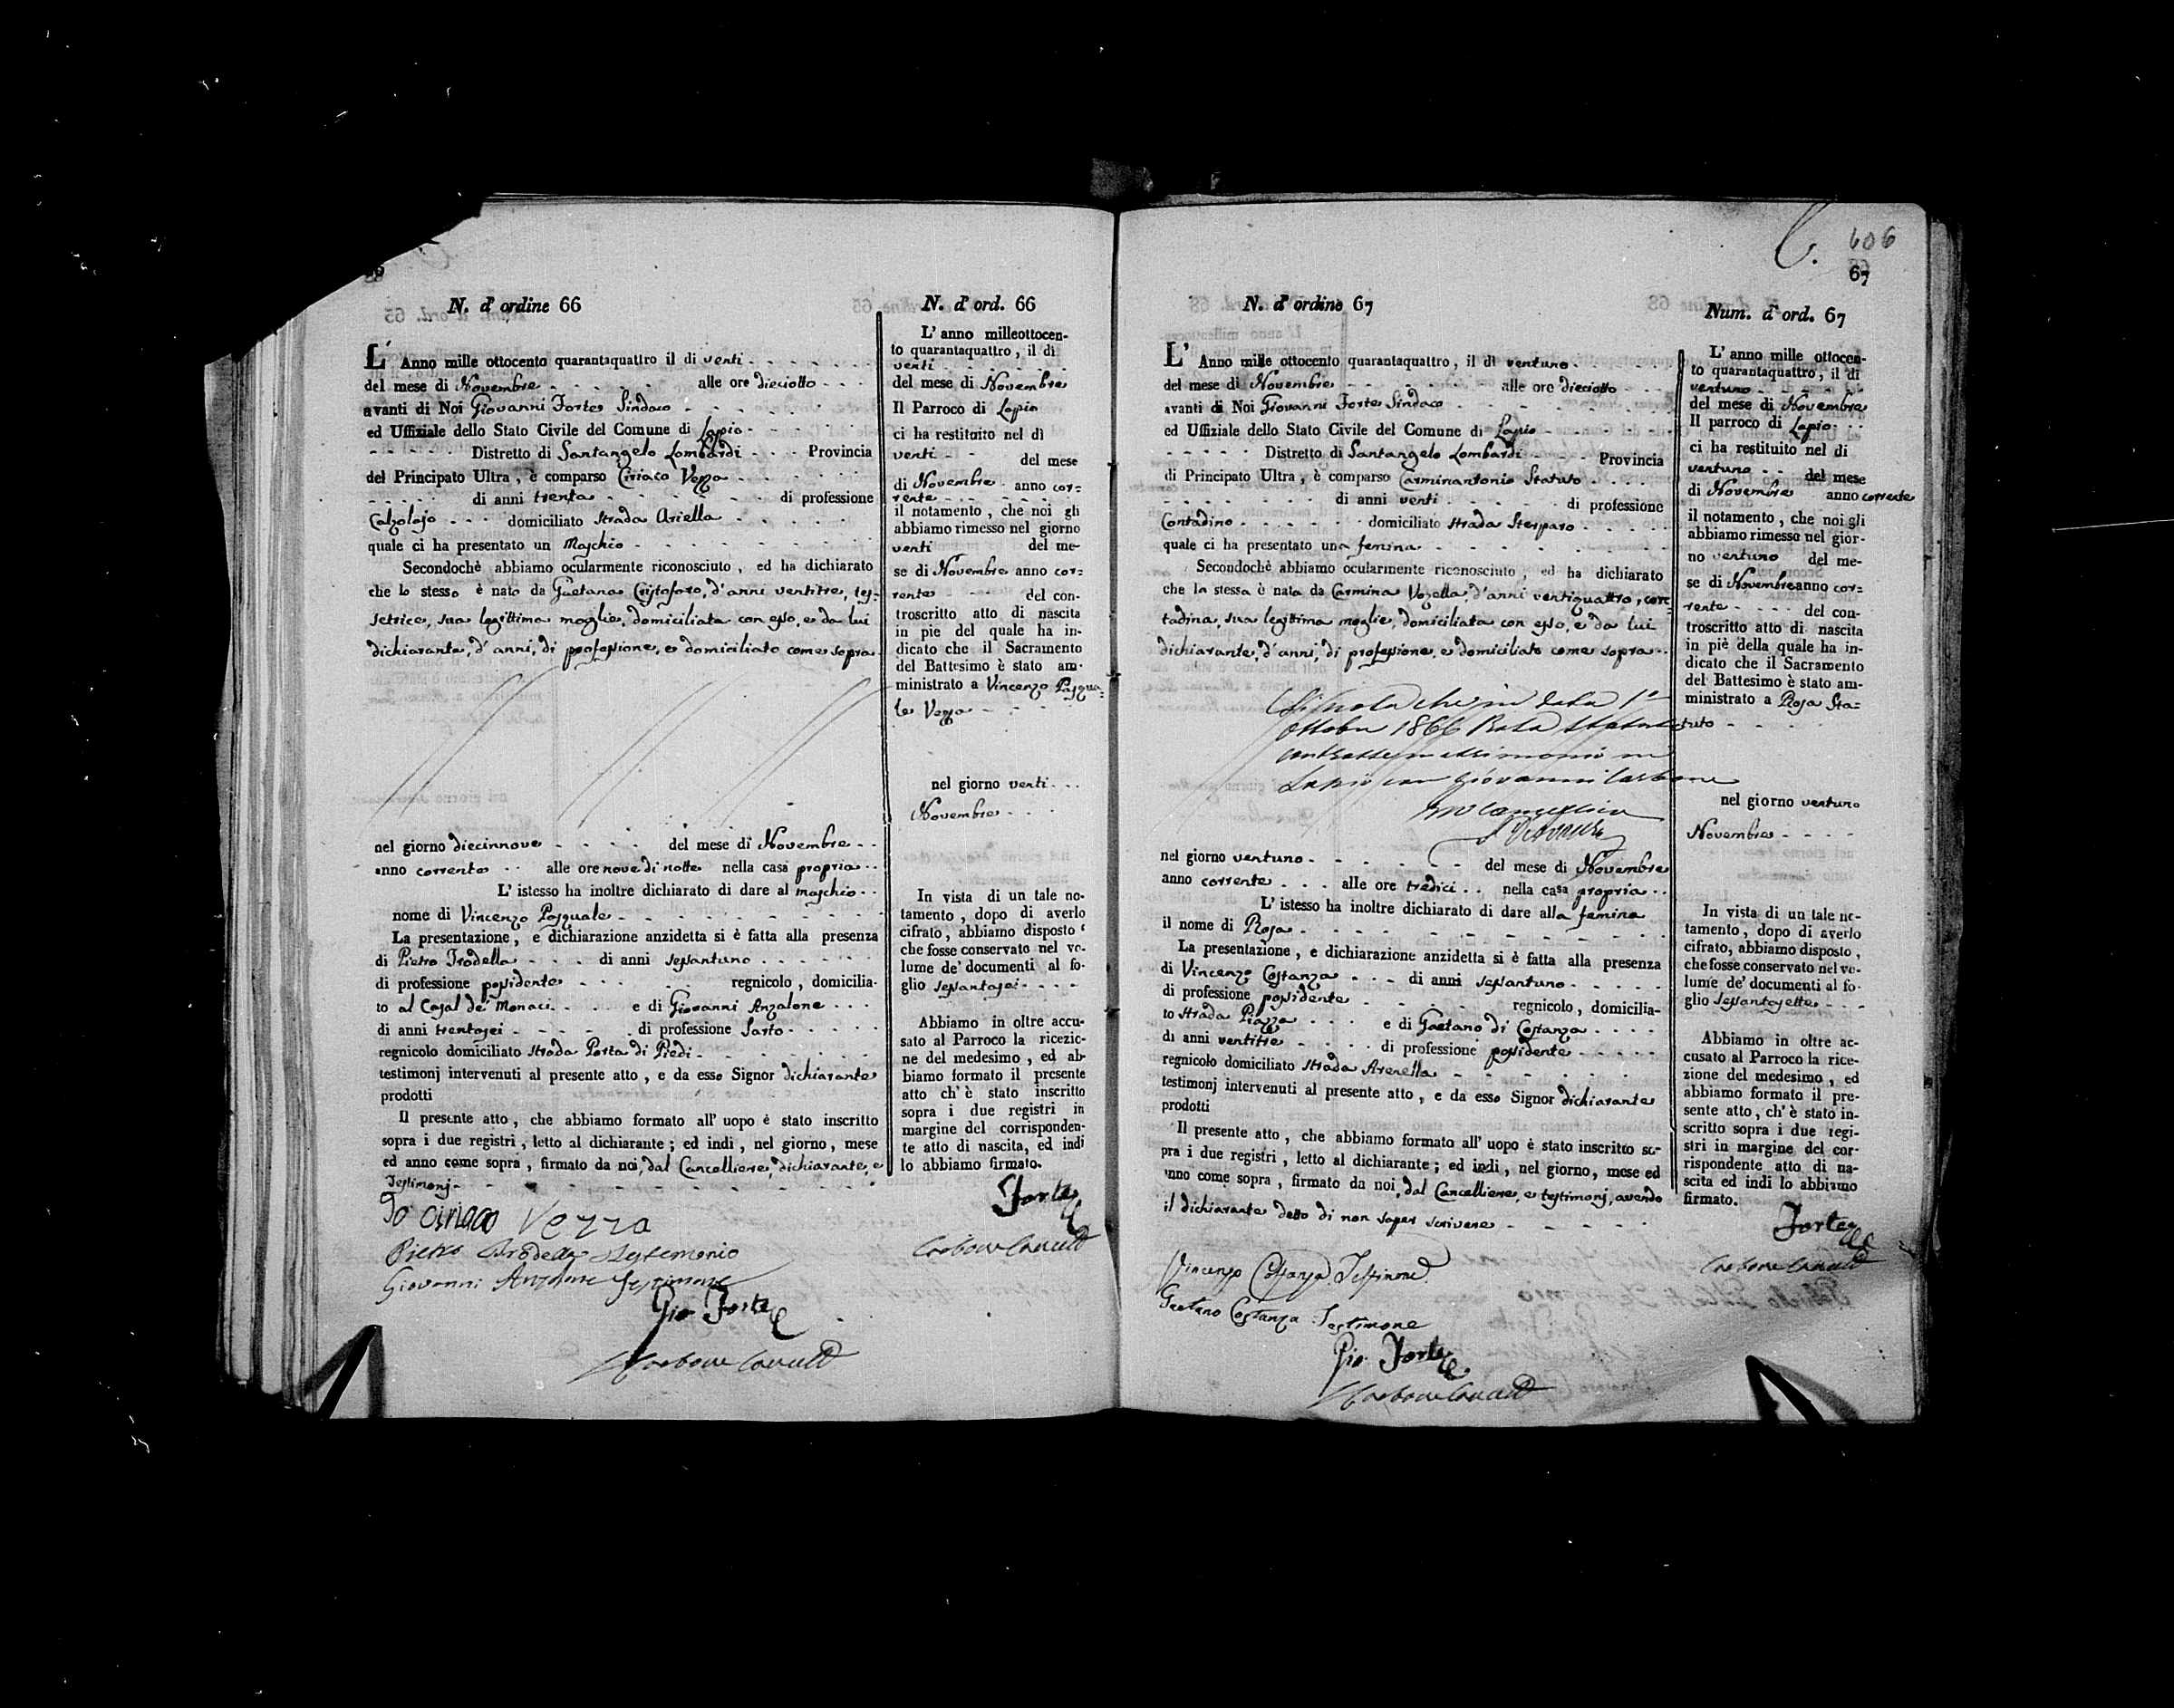 N. d' ordine 66
L' Anno mille ottocento quarantaquattro il di venti
del mese di Novembre alle ore dieciotto
avanti di Noi Giovanni Forte Sindaco
ed Uffiziale dello Stato Civile del Comune di Lapio
Distretto di Santangelo Lombardi Provincia
del Principato Ultra, è comparso Ciriaco Vezza
di anni trenta di professione
Calzolajo domiciliato Strada Ariella
quale ci ha presentato un Maschio
Secondochè abbiamo ocularmente riconosciuto, ed ha dichiarato
che lo stesso è nato da Gaetana Cristoforo, d'anni ventitre, tes=
setrice, sua legittima moglie, domiciliata con esso, e da lui
dichiarante, d'anni, di professione, e domiciliato come sopra
nel giorno diecinnove del mese di Novembre
anno corrente alle ore nove di notte nella casa propria
L' istesso ha inoltre dichiarato di dare al maschio
nome di Vincenzo Pasquale
La presentazione, e dichiarazione anzidetta si è fatta alla presenza
di Pietro Trodella di anni sessantuno
di professione possidente regnicolo, domicilia-
to al Casal de' Monaci e di Giovanni Anzalone
di anni trentasei di professione Sarto
regnicolo domiciliato Strada Porta di Piedi
testimonj intervenuti al presente atto, e da esso Signor dichiarante
prodotti
Il presente atto, che abbiamo formato all' uopo è stato inscritto
sopra i due registri, letto al dichiarante; ed indi, nel giorno, mese
ed anno come sopra, firmato da noi, dal Cancelliere, dichiarante, e
Testimonj
Io ciriaco Vezza
Pietro Trodella Testemonio
Giovanni Anzalone Testimone
Gio Forte
Carbone Cancell
N. d' ord. 66
L' anno milleottocen-
to quarantaquattro, il di
venti
del mese di Novembre
Il Parroco di Lapio
ci ha restituito nel di
venti del mese
di Novembre anno cor=
rente
il notamento, che noi gli
abbiamo rimesso nel giorno
venti del me-
se di Novembre anno cor=
rente del con-
troscritto atto di nascita
in pie del quale ha in-
dicato che il Sacramento
del Battesimo è stato am-
ministrato a Vincenzo Pasqua=
le Vezza
nel giorno venti
Novembre
In vista di un tale no-
tamento, dopo di averlo
cifrato, abbiamo disposto
che fosse conservato nel vo-
lume de' documenti al fo-
glio sessantasei
Abbiamo in oltre accu-
sato al Parroco la ricezio-
ne del medesimo, ed ab-
biamo formato il presente
atto ch' è stato inscritto
sopra i due registri in
margine del corrisponden-
te atto di nascita, ed indi
lo abbiamo firmato.
Forte
Carbone Cancell
606
67
N. d' ordine 67
L' Anno mille ottocento quarantaquattro, il dì ventuno
del mese di Novembre alle ore dieciotto
avanti di Noi Giovanni Forte Sindaco
ed Uffiziale dello Stato Civile del Comune di Lapio
Distretto di Santangelo Lombardi Provincia
di Principato Ultra, è comparso Carminantonio Statuto
di anni venti di professione
Contadino domiciliato Strada Sterparo
quale ci ha presentato una femina
Secondochè abbiamo ocularmente riconosciuto, ed ha dichiarato
che la stessa è nata da Carmina Vozella, d'anni ventiquattro, con=
tadina, sua legittima moglie, domiciliata con esso, e da lui
dichiarante, d'anni, di professione, e domiciliato come sopra
Si nota che in data 1°
ottobre 1866 Rosa Statuto
contrasse matrimonio in
Lapio con Giovanni Carbone
nel giorno ventuno del mese di Novembre
anno corrente alle ore tredici nella casa propria
L' istesso ha inoltre dichiarato di dare alla femina
il nome di Rosa
La presentazione, e dichiarazione anzidetta si è fatta alla presenza
di Vincenzo Costanza di anni sessantuno
di professione possidente regnicolo, domicilia-
to Strada Piazza e di Gaetano di Costanza
di anni ventitre di professione possidente
regnicolo domiciliato Strada Arenella
testimonj intervenuti al presente atto, e da esso Signor dichiarante
prodotti
Il presente atto, che abbiamo formato all' uopo è stato inscritto so-
pra i due registri, letto al dichiarante; ed indi, nel giorno, mese ed
anno come sopra, firmato da noi, dal Cancelliere, e testimonj, avendo
il dichiarante detto di non saper scrivere
Vincenzo Costanza Testimone
Gaetano Costanza Testimone
Gio. Forte
Carbone Cancell
Num. d' ord. 67
L' anno mille ottocen-
to quarantaquattro, il di
ventuno
del mese di Novembre
Il parroco di Lapio
ci ha restituito nel di
ventuno del mese
di Novembre anno corrente
il notamento, che noi gli
abbiamo rimesso nel gior-
no ventuno del me-
se di Novembre anno cor=
rente del con-
troscritto atto di nascita
in piè della quale ha in-
dicato che il Sacramento
del Battesimo è stato am-
ministrato a Rosa Sta=
tuto
nel giorno ventuno
Novembre
In vista di un tale no-
tamento, dopo di averlo
cifrato, abbiamo disposto,
che fosse conservato nel vo-
lume de' documenti al fo-
glio sessantasette
Abbiamo in oltre ac-
cusato al Parroco la rice-
zione del medesimo, ed
abbiamo formato il pre-
sente atto, ch' è stato in-
scritto sopra i due regi-
stri in margine del cor-
rispondente atto di na-
scita ed indi lo abbiamo
firmato.
Forte
Carbone Cancell